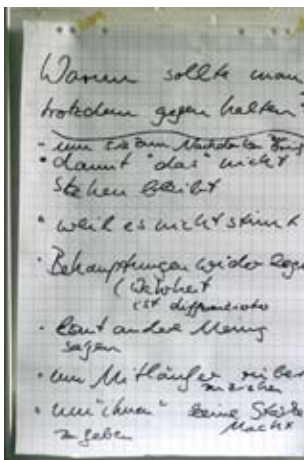 Warum sollte man
trotzdem gegen halten
- um sie zum Nachdenken
• damit "das" nicht
stehen bleibt
• weil es nicht stimmt
• Behauptungen widerlegen
(Wahrheit
ist differenzierter
• laut andere Meinung
sagen
• um Mitläufer rüber
zu ziehen
• um "ihnen" keine
Macht
zu geben